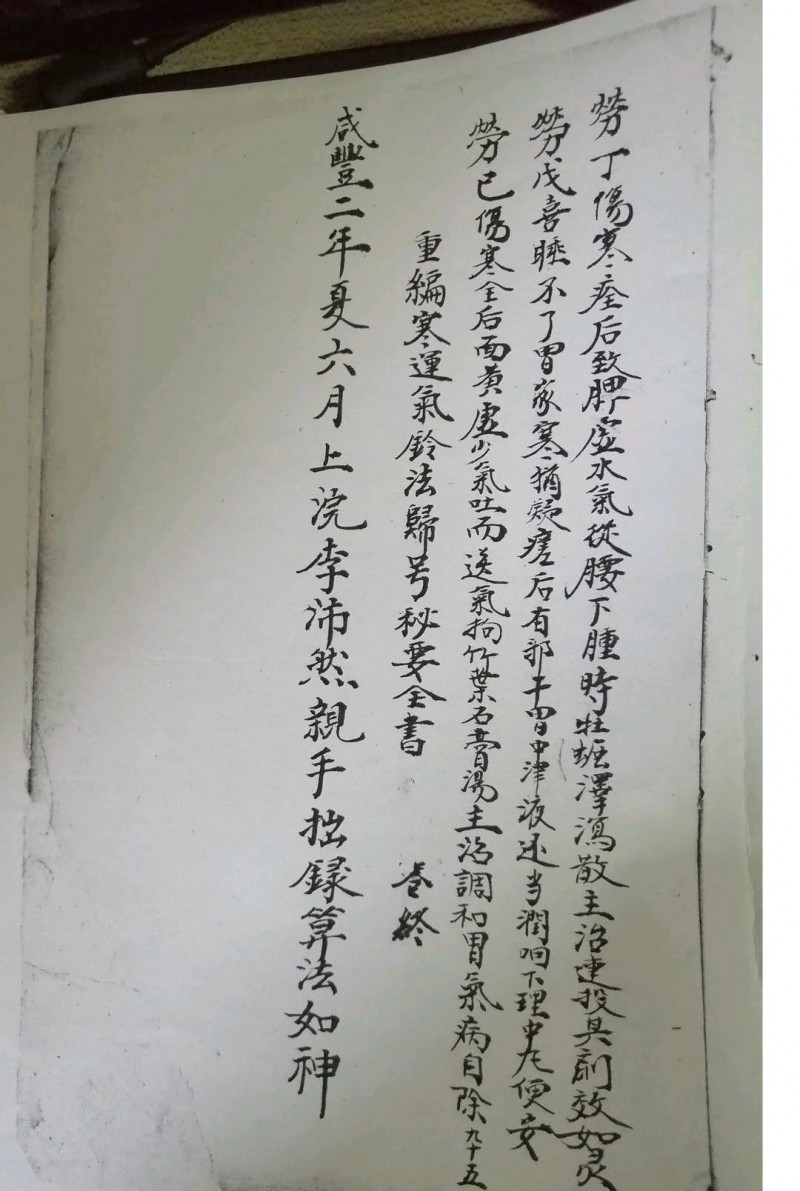 勞丁傷寒痊后致脾虛水氣從腰下腫時牡蠣澤瀉散主治連投其劑效如灵
勞戊喜唾不了胃家寒猶凝瘥后有邪干胃中津液还当潤咽下理中九便安
勞已傷寒全后面黄虛少氣吐而送氣拘竹葉石膏湯主治調和胃氣病自除九十五
重編寒運氣鈴法歸号秘要全書 卷終
咸豐二年夏六月上浣李沛然親手拙録算法如神